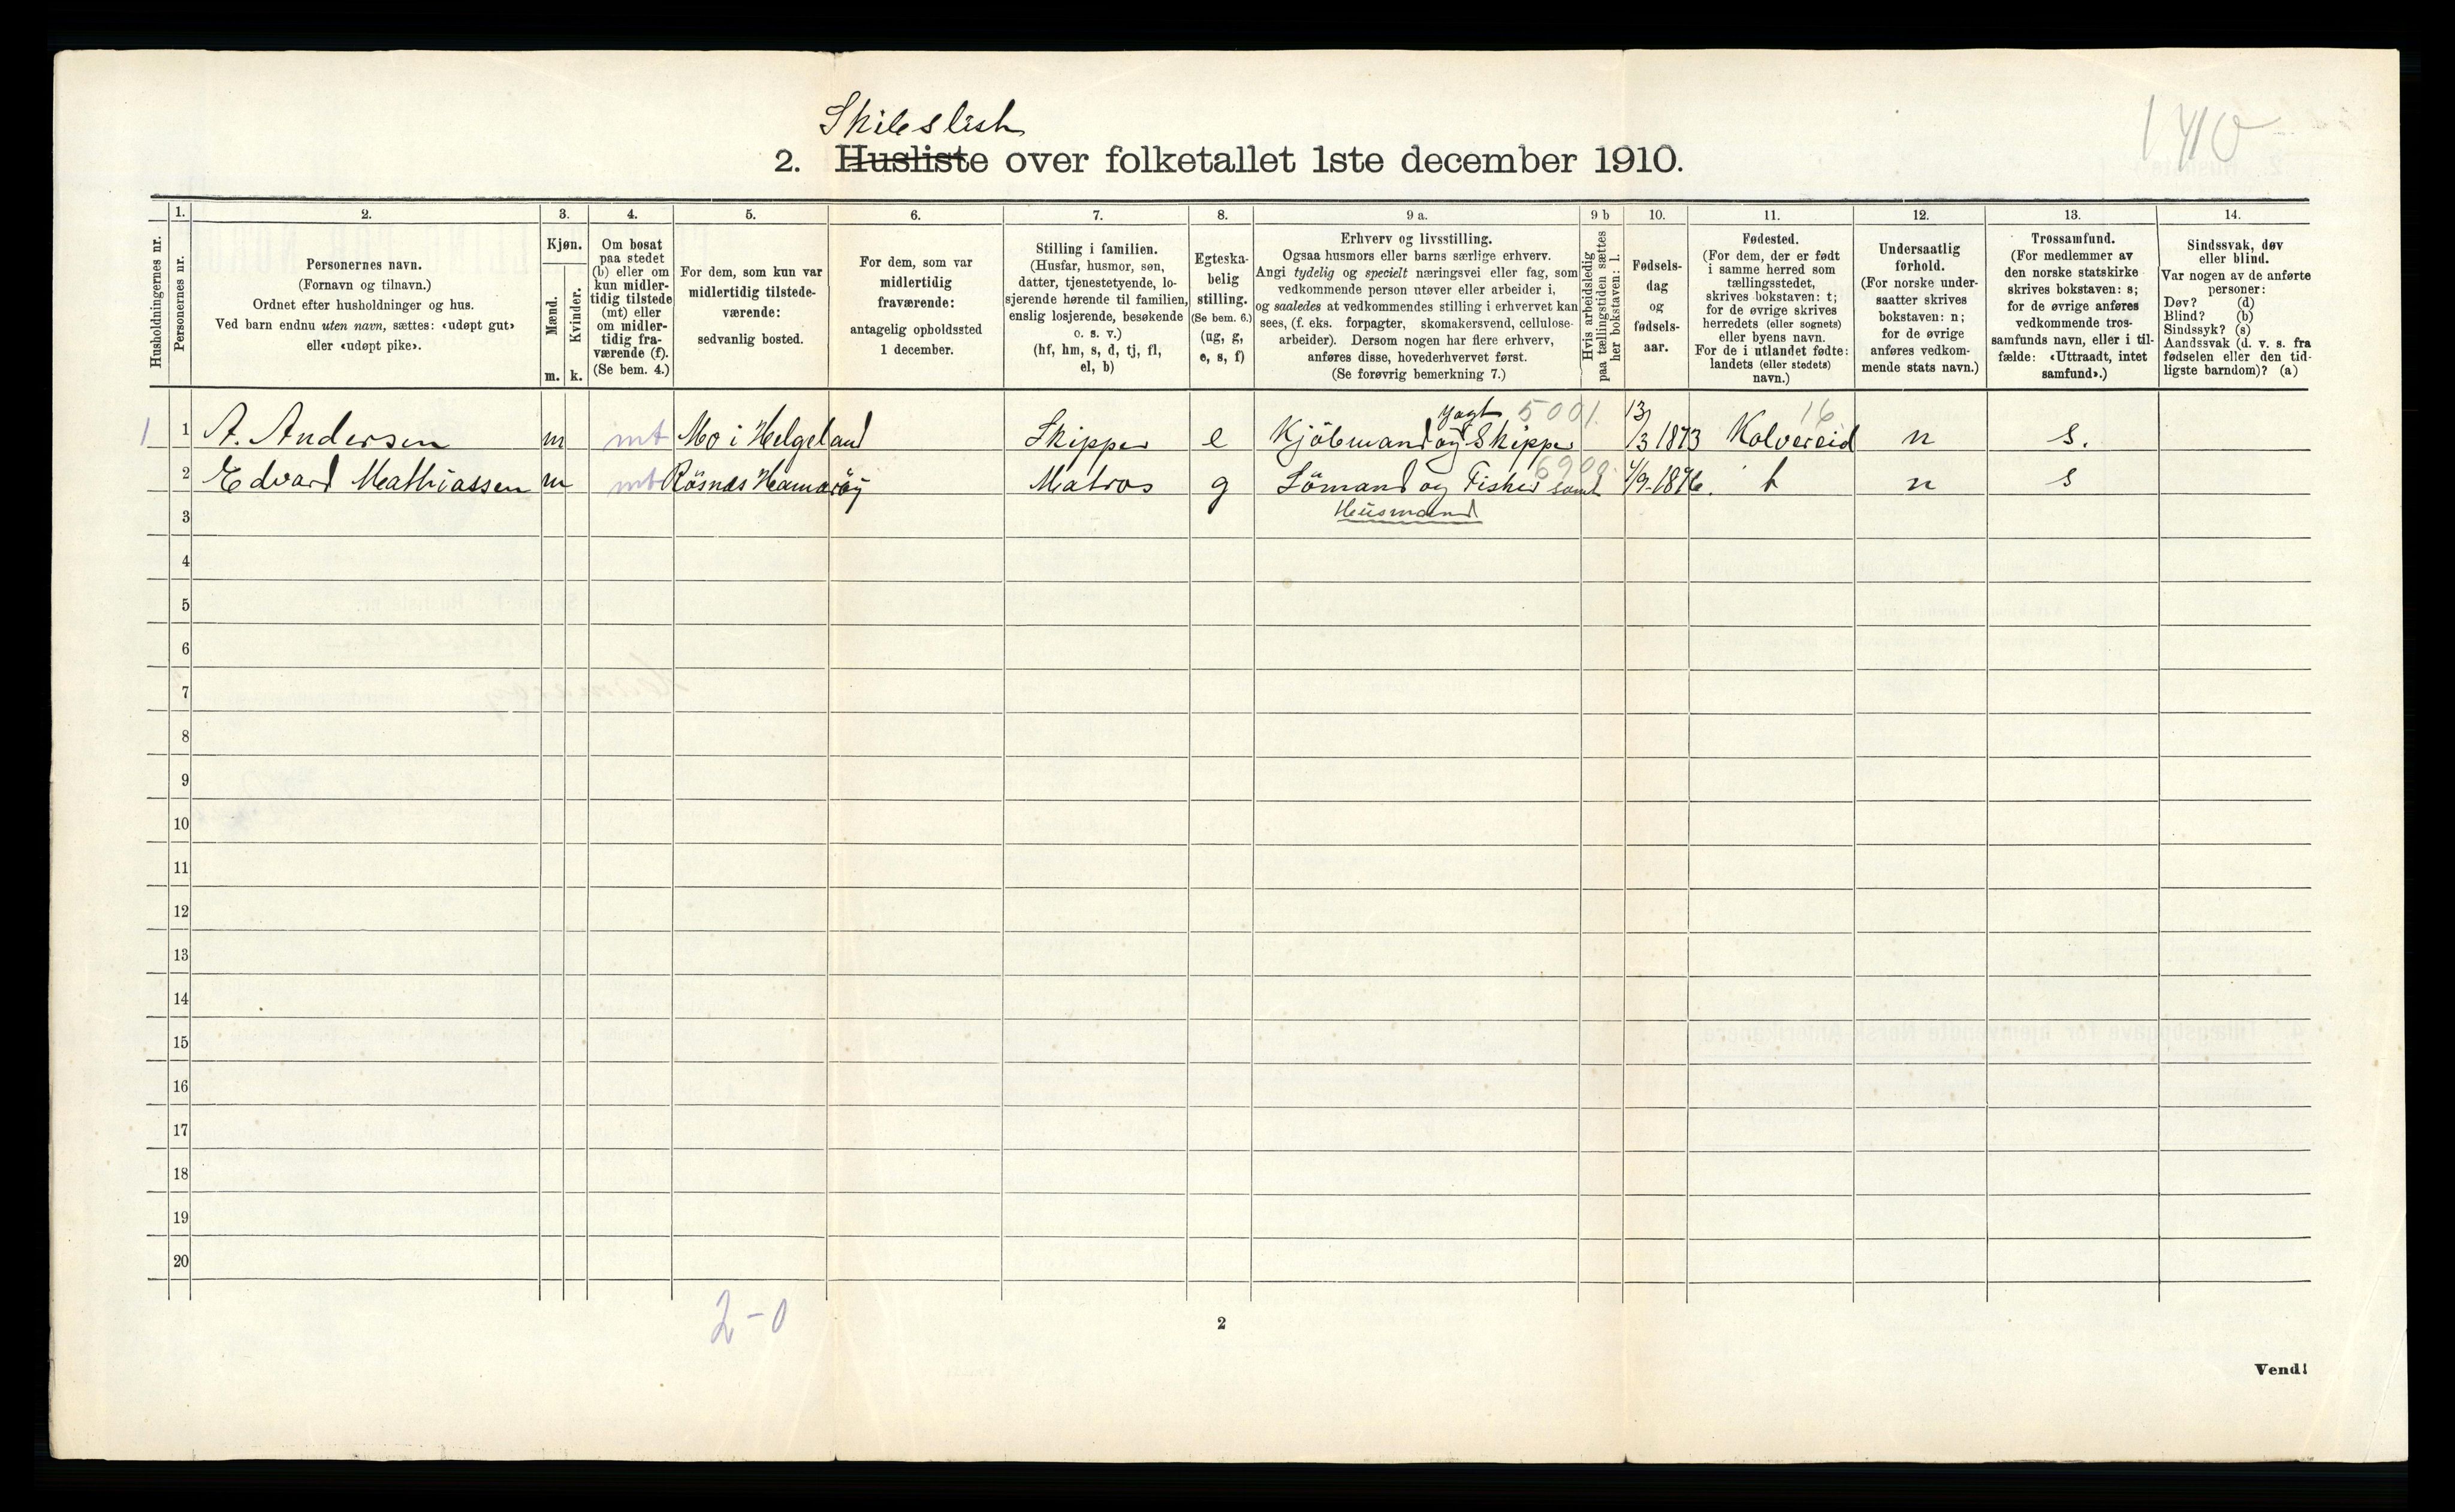 Skibsliste
140
2. Husliste over folketallet 1ste december 1910.
Husholdningernes nr.
1.
Personernes nr.
2.
Personernes navn.
(Fornavn og tilnavn.)
Ordnet efter husholdninger og hus.
Ved barn endnu uten navn, sættes: «udøpt gut»
eller «udøpt pike».
3.
Kjøn.
Mænd.
Kvinder.
m. k.
4.
Om bosat
paa stedet
(b) eller om
kun midler-
tidig tilstede
(mt) eller
om midler-
tidig fra-
værende (f).
(Se bem. 4.)
5.
For dem, som kun var
midlertidig tilstede-
værende:
sedvanlig bosted.
6.
For dem, som var
midlertidig
fraværende:
antagelig opholdssted
1 december.
7.
Stilling i familien.
(Husfar, husmor, søn,
datter, tjenestetyende, lo-
sjerende hørende til familien,
enslig losjerende, besøkende
o. s. v.)
(hf, hm, s, d, tj, fl,
el, b)
8.
Egteska-
belig
stilling.
(Se bem. 6.)
(ug, g,
e, s, f)
9 a.
Erhverv og livsstilling.
Ogsaa husmors eller barns særlige erhverv.
Angi tydelig og specielt næringsvei eller fag, som
vedkommende person utøver eller arbeider i,
og saaledes at vedkommendes stilling i erhvervet kan
sees, (f. eks. forpagter, skomakersvend, cellulose-
arbeider). Dersom nogen har flere erhverv,
anføres disse, hovederhvervet først.
(Se forøvrig bemerkning 7.)
9 b
Hvis arbeidsledig
paa tællingstiden sættes
her bokstaven: l.
10.
Fødsels-
dag
og
fødsels-
aar.
11.
Fødested.
(For dem, der er født
i samme herred som
tællingsstedet,
skrives bokstaven: t;
for de øvrige skrives
herredets (eller sognets)
eller byens navn.
For de i utlandet fødte:
landets (eller stedets)
navn.)
12.
Undersaatlig
forhold.
(For norske under-
saatter skrives
bokstaven: n;
for de øvrige
anføres vedkom-
mende stats navn.)
13.
Trossamfund.
(For medlemmer av
den norske statskirke
skrives bokstaven: s;
for de øvrige anføres
vedkommende tros-
samfunds navn, eller i til-
fælde: «Uttraadt, intet
samfund».)
14.
Sindssvak, døv
eller blind.
Var nogen av de anførte
personer:
Døv? (d)
Blind? (b)
Sindssyk? (s)
Aandssvak (d. v. s. fra
fødselen eller den tid-
ligste barndom)? (a)
1 1 A. Andersen m mt Mo i Helgeland Skipper e Kjöbmand og Jagt Skipper 5001. 13/3 1873 Kolvereid 16 n s.
2 Edvard Mathiassen m mt Rösnes Hamaröy Matros g Sömand og Fisker samt 6900. 4/9-1876. t n s
3 Husmand
4
5
6
7
8
9
10
11
12
13
14
15
16
17
18
19
20
2-0
2
Vend!